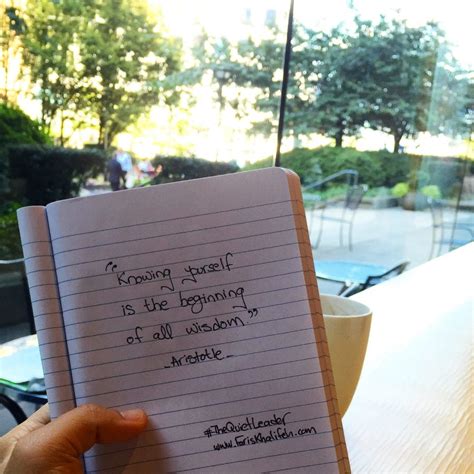 "Knowing yourself
is the beginning
of all wisdom"
- Aristotle -
#TheQuietLeader
www.FarisKhalifeh.com